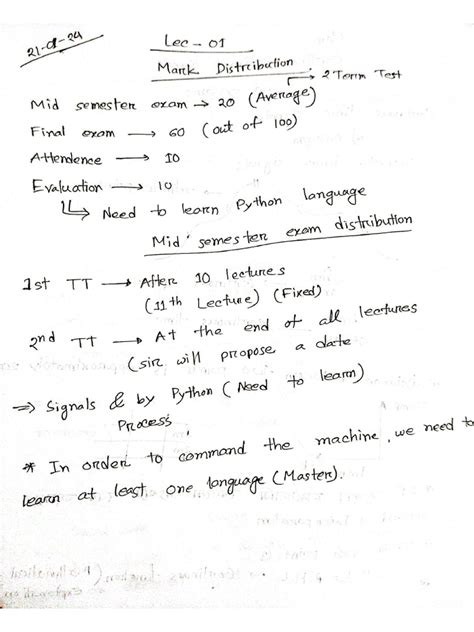 21-01-24
Lec - 01
Mark Distribution
2 Term Test
Mid semester exam → 20 (Average)
Final exam → 60 (out of 100)
Attendence → 10
Evaluation → 10
↳ Need to learn Python language
Mid semester exam distribution
1st TT → After 10 lectures
(11th Lecture) (Fixed)
2nd TT → At the end of all lectures
(sir will propose a date
⇒ Signals & by Python (Need to learn)
Process
* In order to command the machine, we need to
learn at least one language (Master).